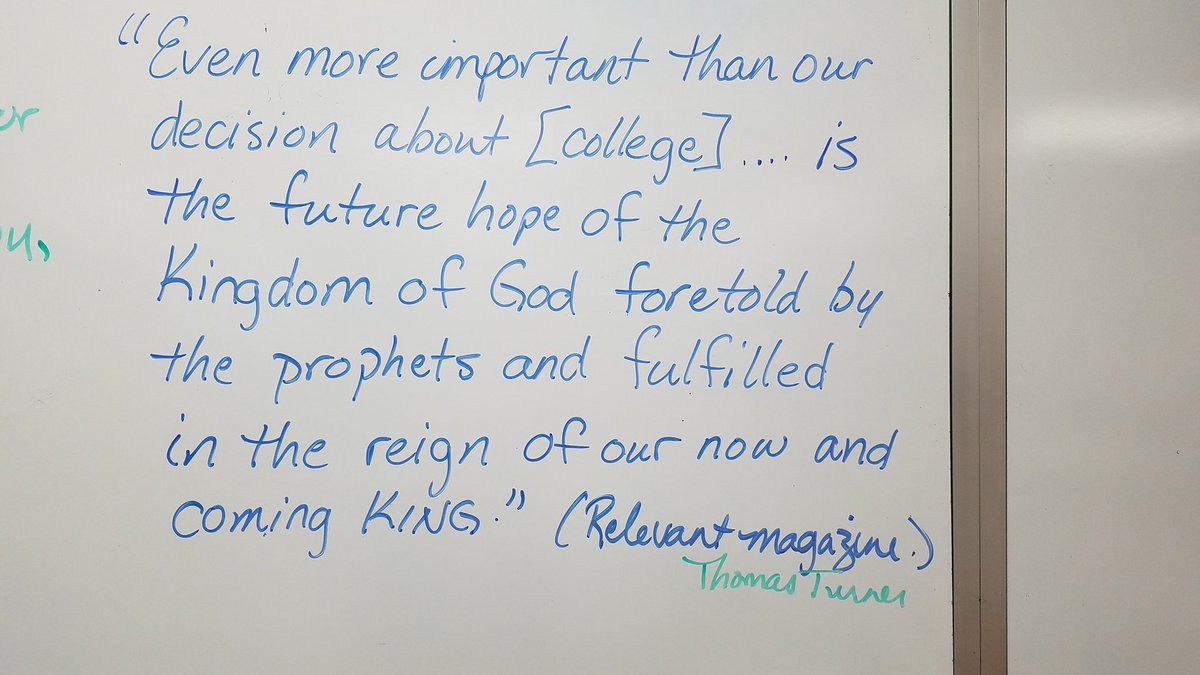 "Even more important than our
decision about [college].... is
the future hope of the
Kingdom of God foretold by
the prophets and fulfilled
in the reign of our now and
coming KING." (Relevant magazine.)
Thomas Turner